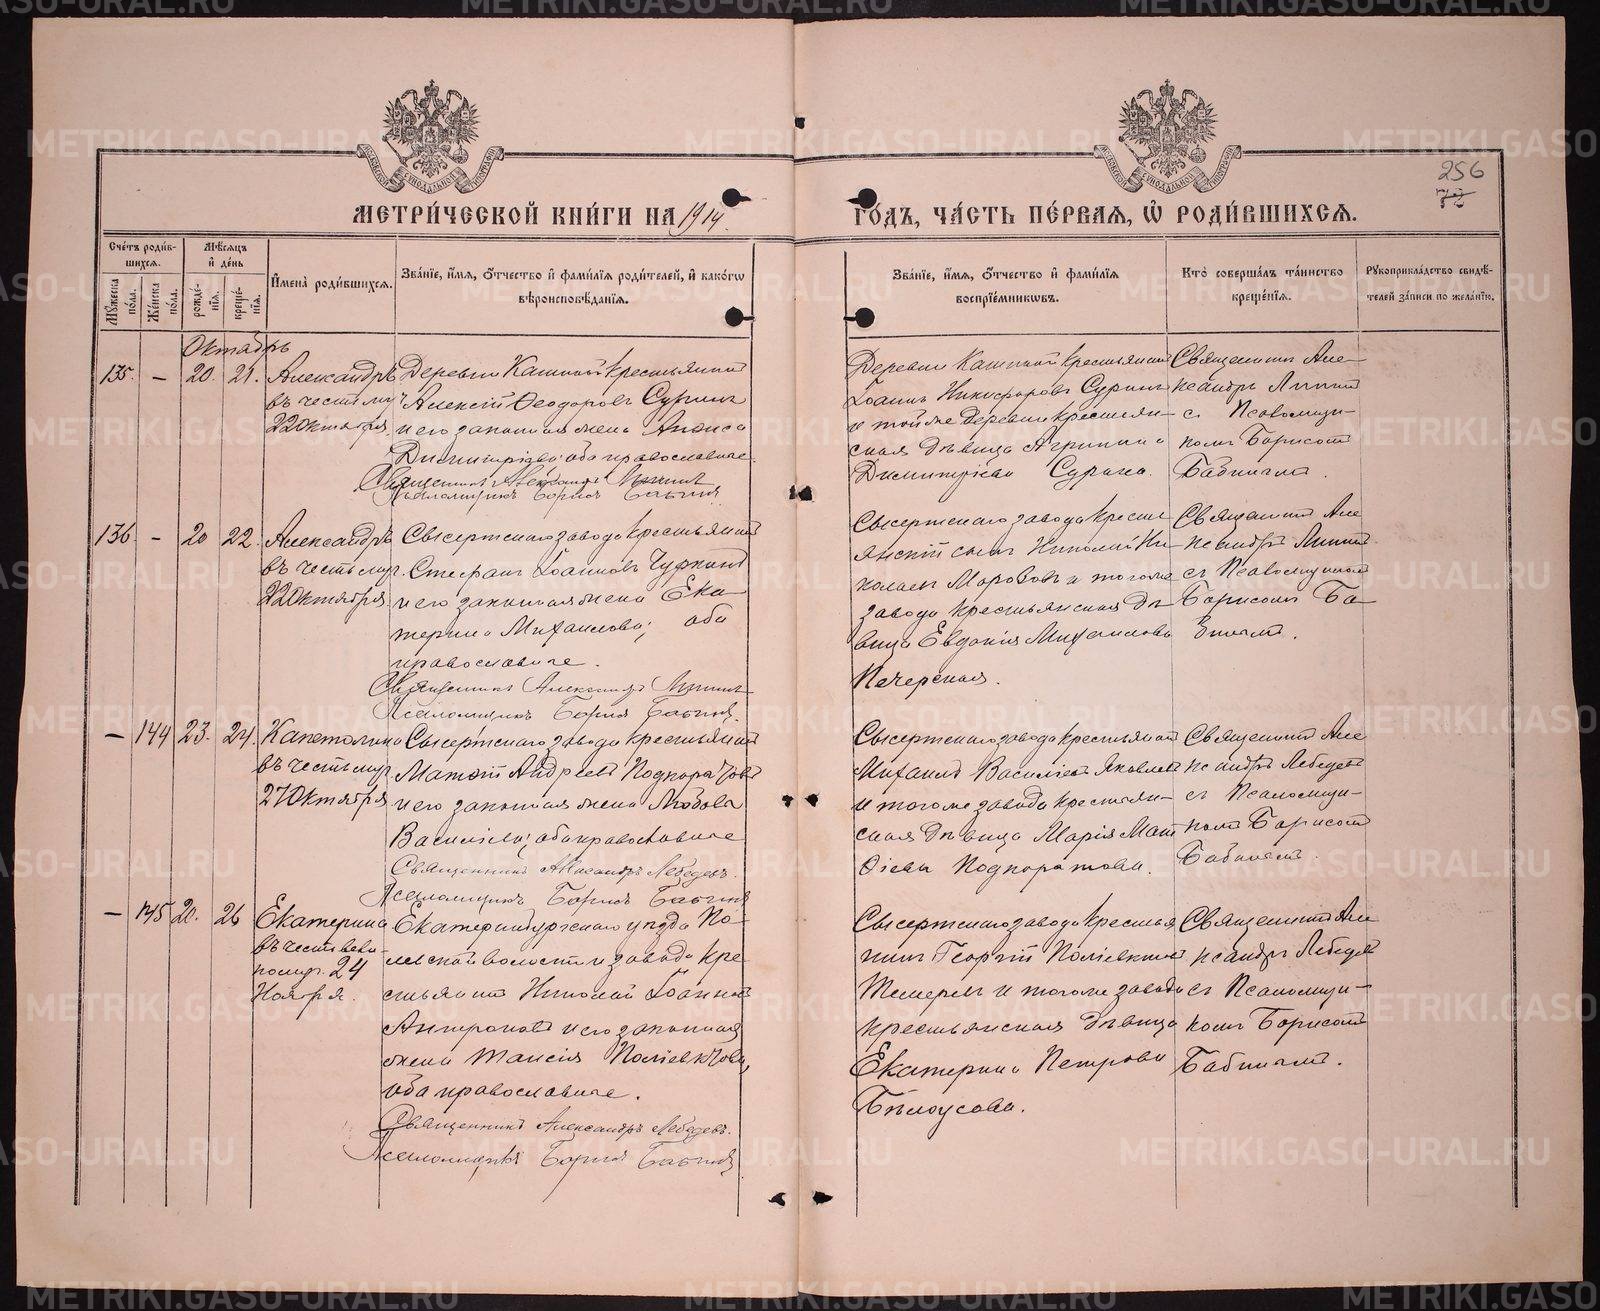 МЕТРИ́ЧЕСКОЙ КНИ́ГИ НА 1914
ГО́ДЪ, ЧА́СТЬ ПЕ́РВАЯ, Ѽ РОДИ́ВШИХСЯ.
256
72
Сче́тъ роди́в-
шихся.
Мѣ́сяцъ
и҆ де́нь
И҆мена̀ роди́вшихся.
Зва́нїе, и҆́мя, ѻ҆́тчество и҆ фами́лїя роди́телей, и҆ како́гѡ
вѣроисповѣ́данїя.
Зва́нїе, и҆́мя, ѻ҆́тчество и҆ фами́лїя
воспрїе́мникѡвъ.
Кто̀ соверша́лъ та́инство
креще́нїя.
Рꙋкоприкла́дство свидѣ́-
телей за́писи по жела́нїю.
Мꙋ́жеска
по́ла.
Же́нска
по́ла.
рожде́-
нїя.
креще́-
нїя.
Октябрь
135. – 20. 21.
Александръ
въ честь му
22 Октября
Деревни Кашиной крестьянинъ
Алексій Ѳеодоровъ Суринъ
и его законная жена Анфиса
Димитріева; оба православные.
Священникъ Александръ
Псаломщикъ Борисъ Бабинъ
Деревни Кашиной крестьянинъ
Іоаннъ Никифоровъ Суринъ
и той же деревни крестьян-
ская дѣвица Агрипина
Димитріева Сурина.
Священникъ Але-
ксандръ
съ Псаломщи-
комъ Борисомъ
Бабинымъ.
136 – 20 22.
Александръ
въ честь муч.
22 Октября
Сысертскаго завода крестьянинъ
Стефанъ Іоанновъ Чуркинъ
и его законная жена Ека-
терина Михаилова; оба
православные.
Священникъ Александръ
Псаломщикъ Борисъ Бабинъ.
Сысертскаго завода кресть-
янскій сынъ Николай Ни-
колаевъ Морозовъ и того же
завода крестьянская дѣ-
вица Евдокія Михаилова
Печерская.
Священникъ Але
ксандръ
съ Псаломщикомъ
Борисомъ Ба-
бинымъ.
– 144 23. 24.
Капетолина
въ честь муч.
27 Октября
Сысертскаго завода крестьянинъ
Матѳій Андреевъ Подкорытовъ
и его законная жена Любовь
Василіева; оба православные
Священникъ Александръ Лебедевъ.
Псаломщикъ Борисъ Бабинъ
Сысертскаго завода крестьянинъ
Михаилъ Василіевъ Яковлевъ
и того же завода крестьян-
ская дѣвица Марія Мат
ѳіева Подкорытова.
Священникъ Але
ксандръ Лебедевъ
съ Псаломщи-
комъ Борисомъ
Бабинымъ.
– 145 20. 26
Екатерина
въ честь вели-
номуч. 24
Ноября.
Екатеринбургскаго уѣзда По-
левской волости и завода кре
стьянинъ Николай Іоанновъ
и его законная
жена Таисія Поліевктова,
оба православные.
Священникъ Александръ Лебедевъ.
Псаломщикъ Борисъ Бабинъ
Сысертскаго завода крестья
нинъ Георгій Поліевктовъ
и того же завода
крестьянская дѣвица
Екатерина Петрова
Бѣлоусова.
Священникъ Але
ксандръ Лебедевъ
съ Псаломщи-
комъ Борисомъ
Бабинымъ.
METRIKI.GASO-URAL.RU